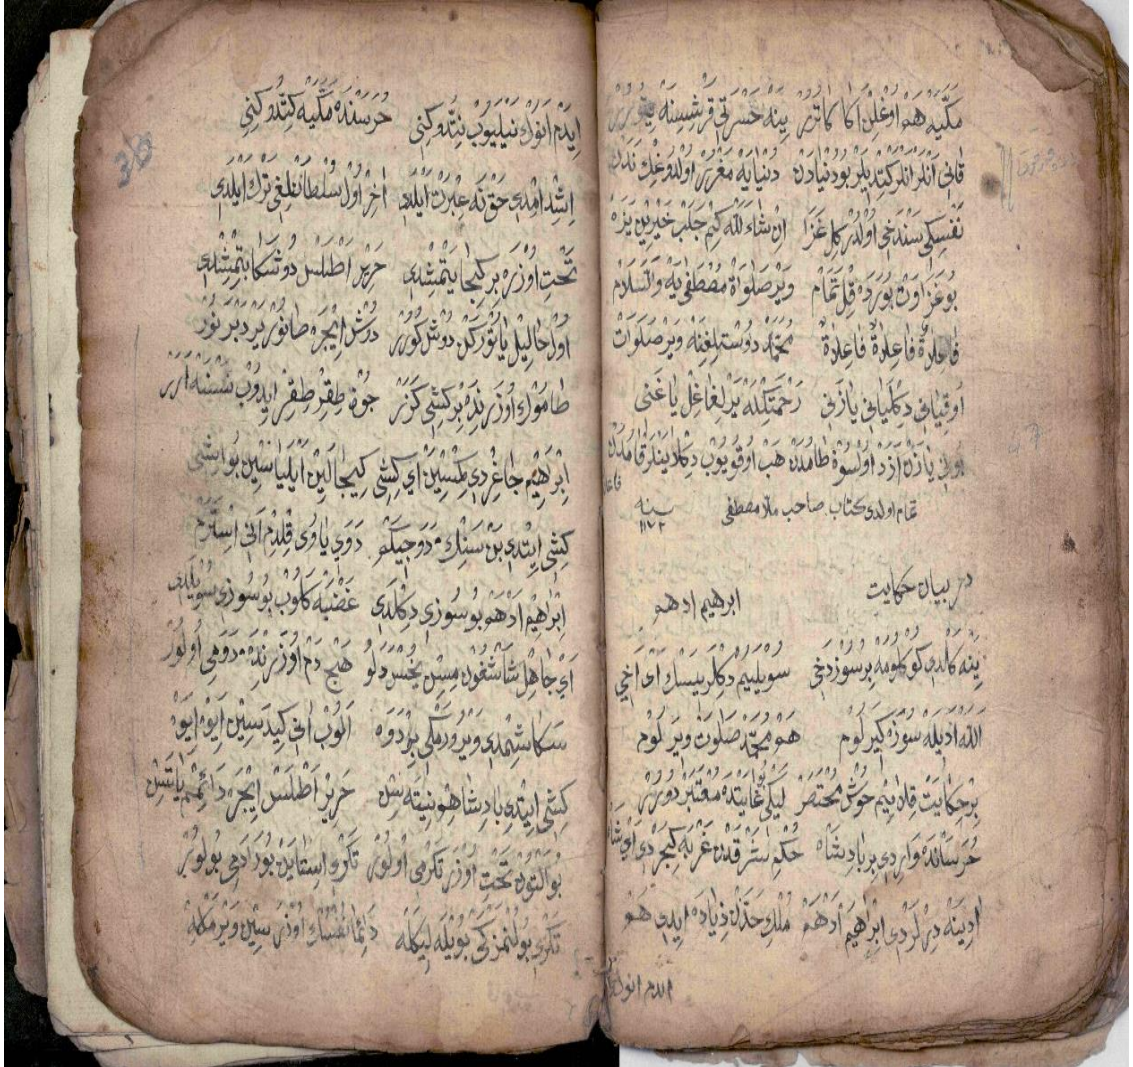 مكّيه هم اوغلن اكا كاتورر ينه حسرتى قرشسينه
قانى آنلر انلر كتديلر بو دنيادن دنيايه مغرر اولدوغك ندن
نفسكى سندخى اولدر كل غزا ان شاء الله كم جلب خيرين يزه
بوغزاوت بورده قل تمام وير صلواة مصطفى يه والسلام
فاعلاة فاعلاة فاعلاة محمد دوستلغنه وير صلوات
اوقيانى دكليانى يازنى رحمتكله يرلغاغل يا غنى
يازن ازد اولسون طامودن هب اوقويوب دكلاينلر قامدن
تمام اولدى كتاب صاحب ملا مصطفى سنه ١١٧٢
در بيان حكايت ابرهيم ادهم
ينه كلدى كوكلومه بر سوز دخى سويليم دكلرسك اى اخى
الله اديله سوزه كيرلوم هم محمد صلوت ويرلوم
بر حكايت قلايم خوش مختصر ليكن غايتده معتبر دورر
خرسانده واردى بر پادشاه حكم شرقدن غربه كيجردى
ادينه ديرلردى ابرهيم ادهم ملك حددن زياده ايدى هم
ايدم انوك
36
ايدم انوك نيليوب نتدوكنى خرسندن مكيه كتدوكنى
اشد امدى حق نه عبرت ايلدى اخر اول سلطانلغى ترك ايلدى
تخت اوزره بر كيجا يتمشدى حرير اطلس دوشكا بتمشدى
اول حاليل ياتوركن دوش كورر دوش ايجره طانور بردبر نور
طاموك اوزرنده بر كشى كزر جون طقر طقر ايدوب نسنه ارر
ابرهيم جاغردى كمسين اى كشى كيجالين ايلياسين بو ايشى
كشى ايتدى بن سنك دوجيكم دوى ياوى قلدم انى استرم
ابرهيم ادهم بو سوزى دكلدى غضبه كلوب بو سوزى سويلدى
اى جاهل شاشقون مسن يخس دلو هيج دم اوزرنده دومى اولور
سكا شمدى ويرورمكى بر دوه الوب انى كيدسين ايوه ايوه
كشى ايتدى پادشاهم نيته سن حرير اطلس ايجره دائم ياتسن
بو التون تخت اوزر تكرى مى اولور تكرى استاين بوراده مى بولور
تكرى بولنمز كى بويله ليكله دائما نفسك اوزرسين ويرمكله